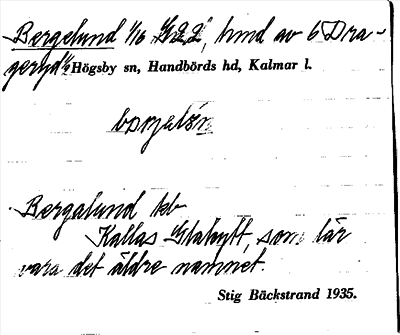 Bergelund 1/6 G22, hmd av 6 Dra-
geryd ½ Högsby sn, Handbörds hd, Kalmar l.
Bergalund kb
Kallas Glahytt, som lär
vara det äldre namnet.
Stig Bäckstrand 1935.